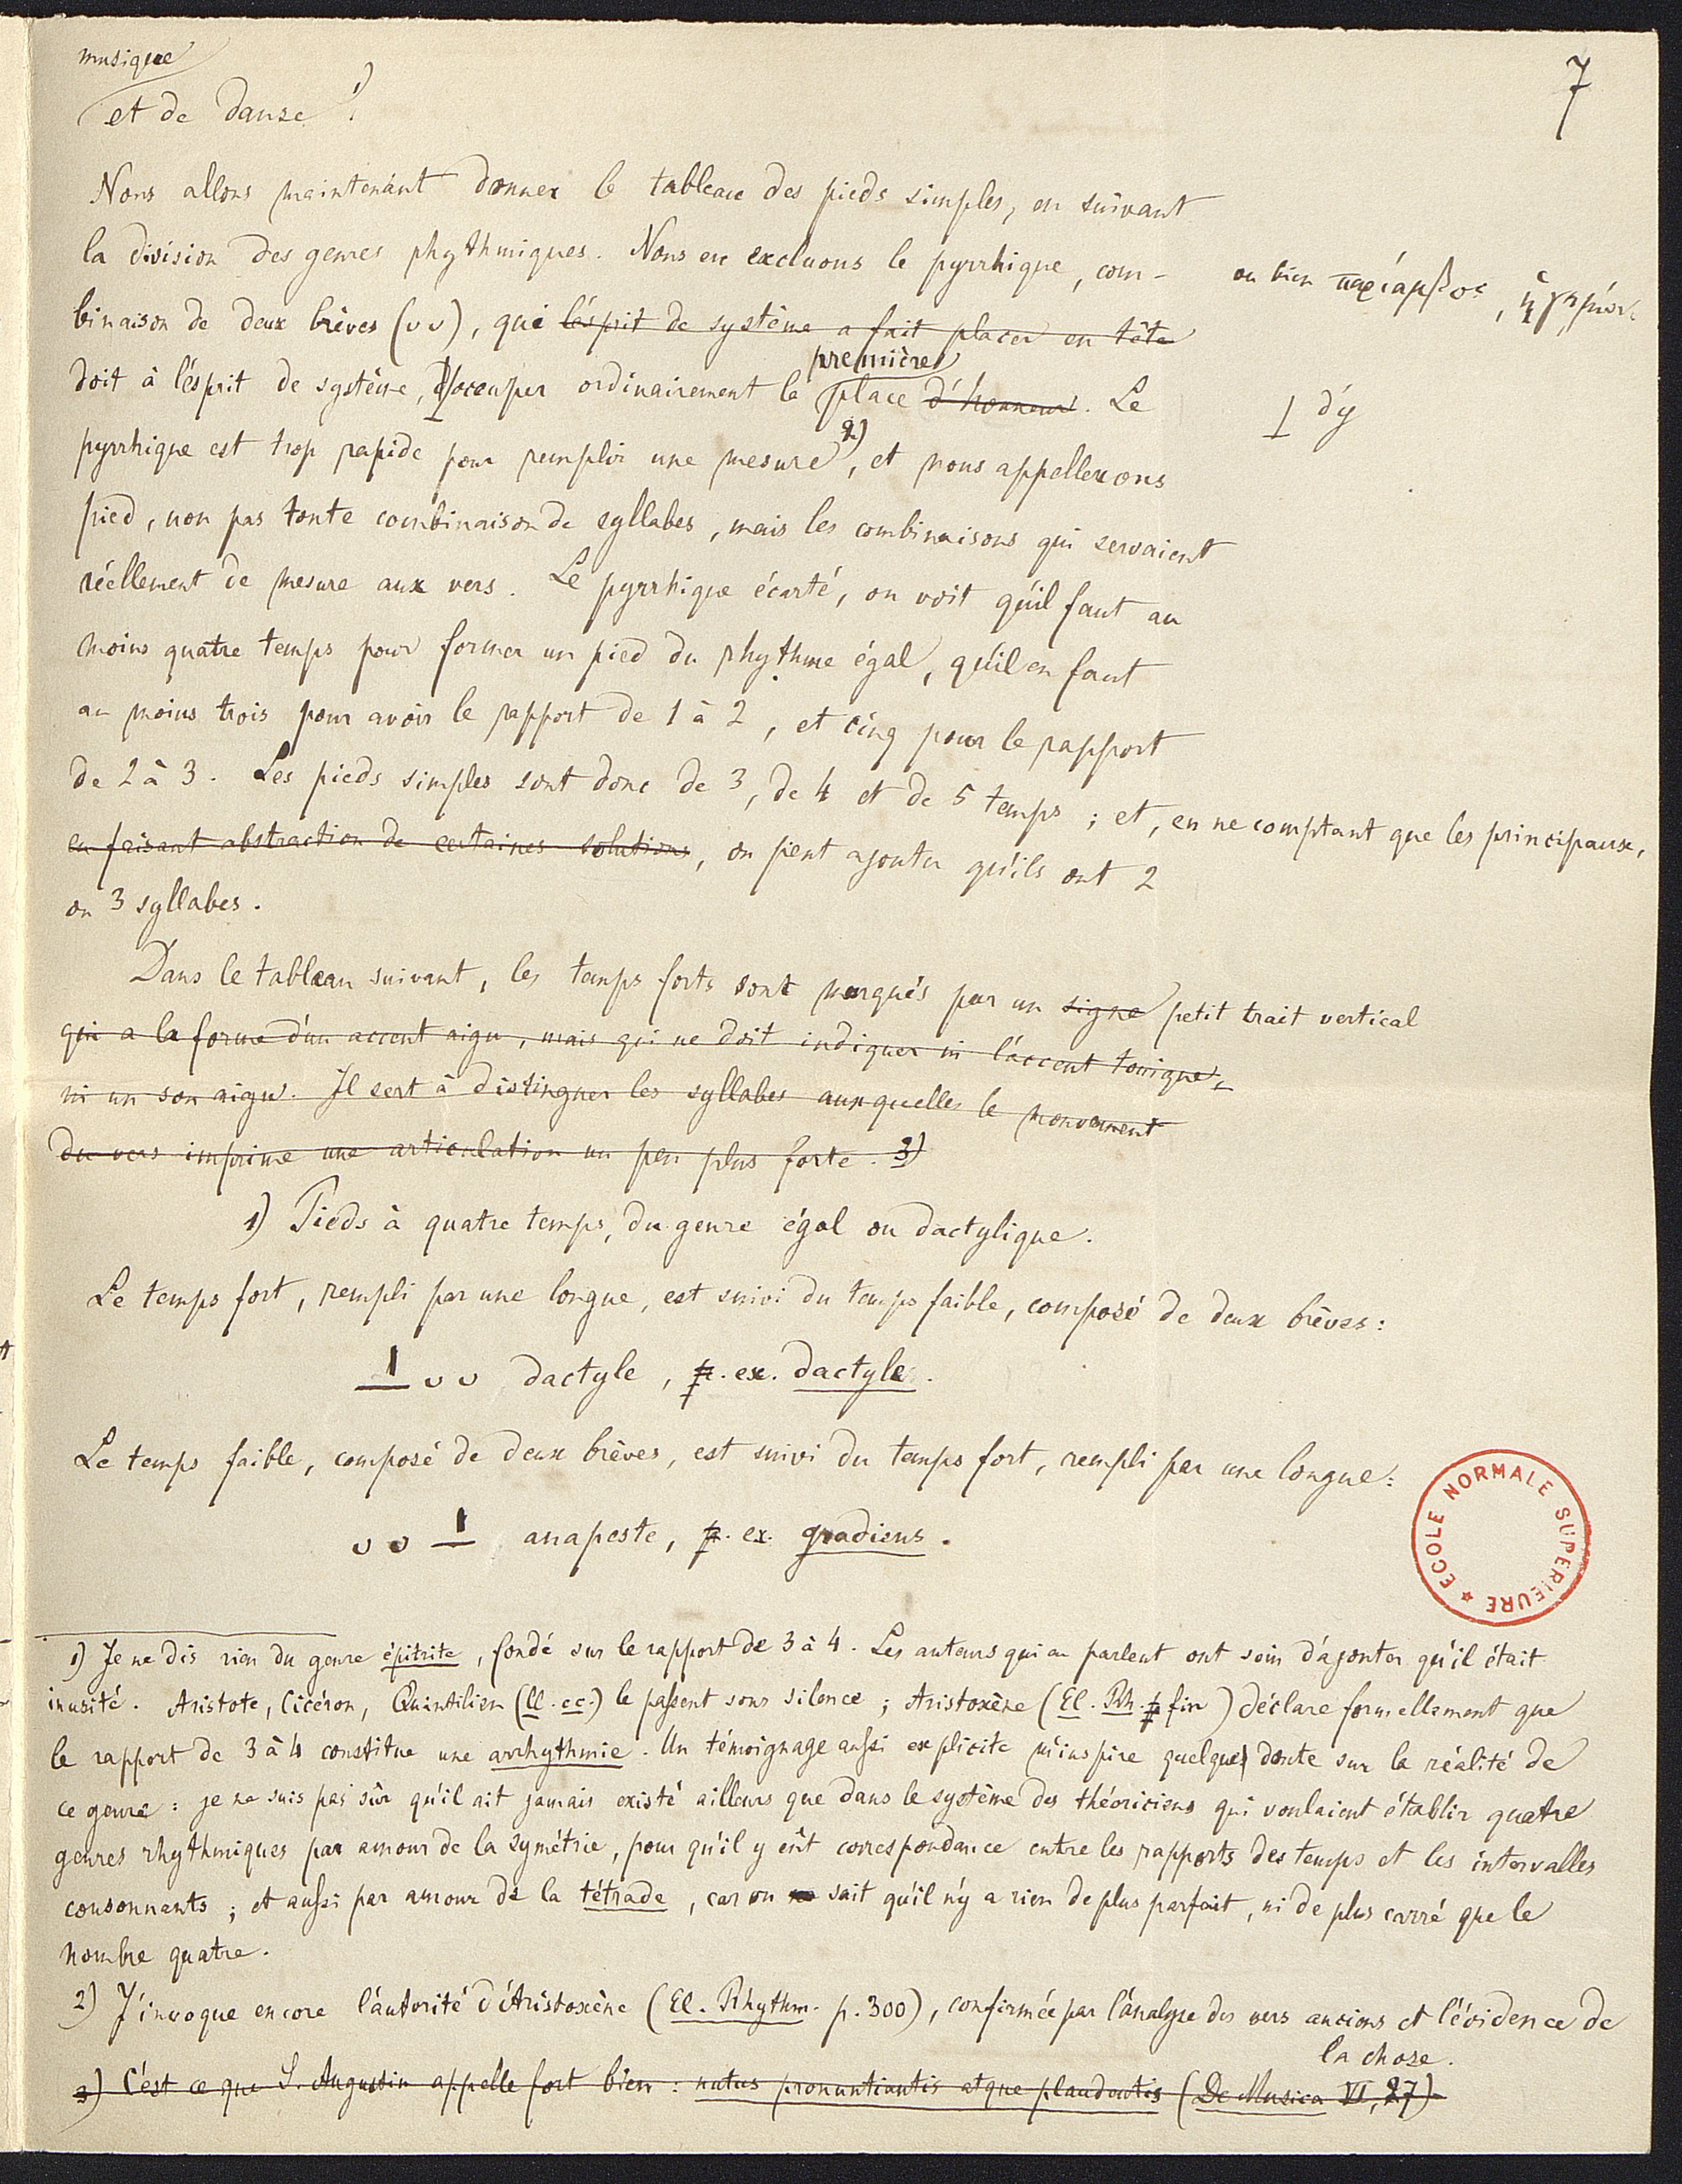 musique
7
et de danse 1)
Nous allons maintenant donner le tableau des pieds simples, en suivant
la division des genres rhythmiques. Nous en excluons le pyrrhique, com-
ou bien παρίαμβος,
binaison de deux brèves (υυ), qui l'ésprit de système a fait placer en tête
première
doit à l'ésprit de système, d'occuper ordinairement la place d'honneur. Le
d'y
pyrrhique est trop rapide pour remplir une mesure 2), et nous appellerons
pied, non pas toute combinaison de syllabes, mais les combinaisons qui servaient
réellement de mesure aux vers. Le pyrrhique écarté, on voit qu'il faut au
moins quatre temps pour former un pied du rhythme égal, qu'il en faut
au moins trois pour avoir le rapport de 1 à 2, et cinq pour le rapport
de 2 à 3. Les pieds simples sont donc de 3, de 4 et de 5 temps ; et, en ne comptant que les principaux,
en faisant abstraction de certaines solutions, on peut ajouter qu'ils ont 2
ou 3 syllabes.
Dans le tableau suivant, les temps forts sont marqués par un signe petit trait vertical
qui a la forme d'un accent aigu, mais qui ne doit indiquer ni l'accent tonique,
ni un son aigu. Il sert à distinguer les syllabes auxquelles le mouvement
du vers imprime une articulation un peu plus forte. 3)
1) Pieds à quatre temps, du genre égal ou dactylique.
Le temps fort, rempli par une longue, est suivi du temps faible, composé de deux brèves :
υυ dactyle, p. ex. dactyle.
Le temps faible, composé de deux brèves, est suivi du temps fort, rempli par une longue :
υυ anapeste, p. ex. gradiens.
ECOLE NORMALE SUPERIEURE
1) Je ne dis rien du genre épitrite, fondé sur le rapport de 3 à 4. Les auteurs qui en parlent ont soin d'ajouter qu'il était
inusité. Aristote, Cicéron, Quintilien (ll. cc.) le passent sous silence ; Aristoxène (El. Rh. fin) déclare formellement que
le rapport de 3 à 4 constitue une arrhythmie. Un témoignage aussi explicite m'inspire quelque doute sur la réalité de
ce genre : je ne suis pas sûr qu'il ait jamais existé ailleurs que dans le système des théoriciens qui voulaient établir quatre
genres rhythmiques par amour de la symétrie, pour qu'il y eût correspondance entre les rapports des temps et les intervalles
consonnants ; et aussi par amour de la tétrade, car on sait qu'il n'y a rien de plus parfait, ni de plus carré que le
nombre quatre.
2) J'invoque encore l'autorité d'Aristoxène (El. Rhythm. p. 300), confirmée par l'analyse des vers anciens et l'évidence de
la chose.
3) C'est ce que S. Augustin appelle fort bien : nutus pronuntiantis atque plaudentis (De Musica VI, 27)